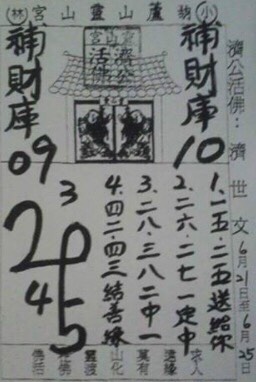 小胡蘆山靈山宮林
濟公活佛：濟世文
6月21日至6月25日
補財庫
10
補財庫
09
濟公
活佛
1.一五.二五送給你
2.二六.二七一定中
3.二八.三八二中一
4.四二.四三結善緣
3
2
4
5